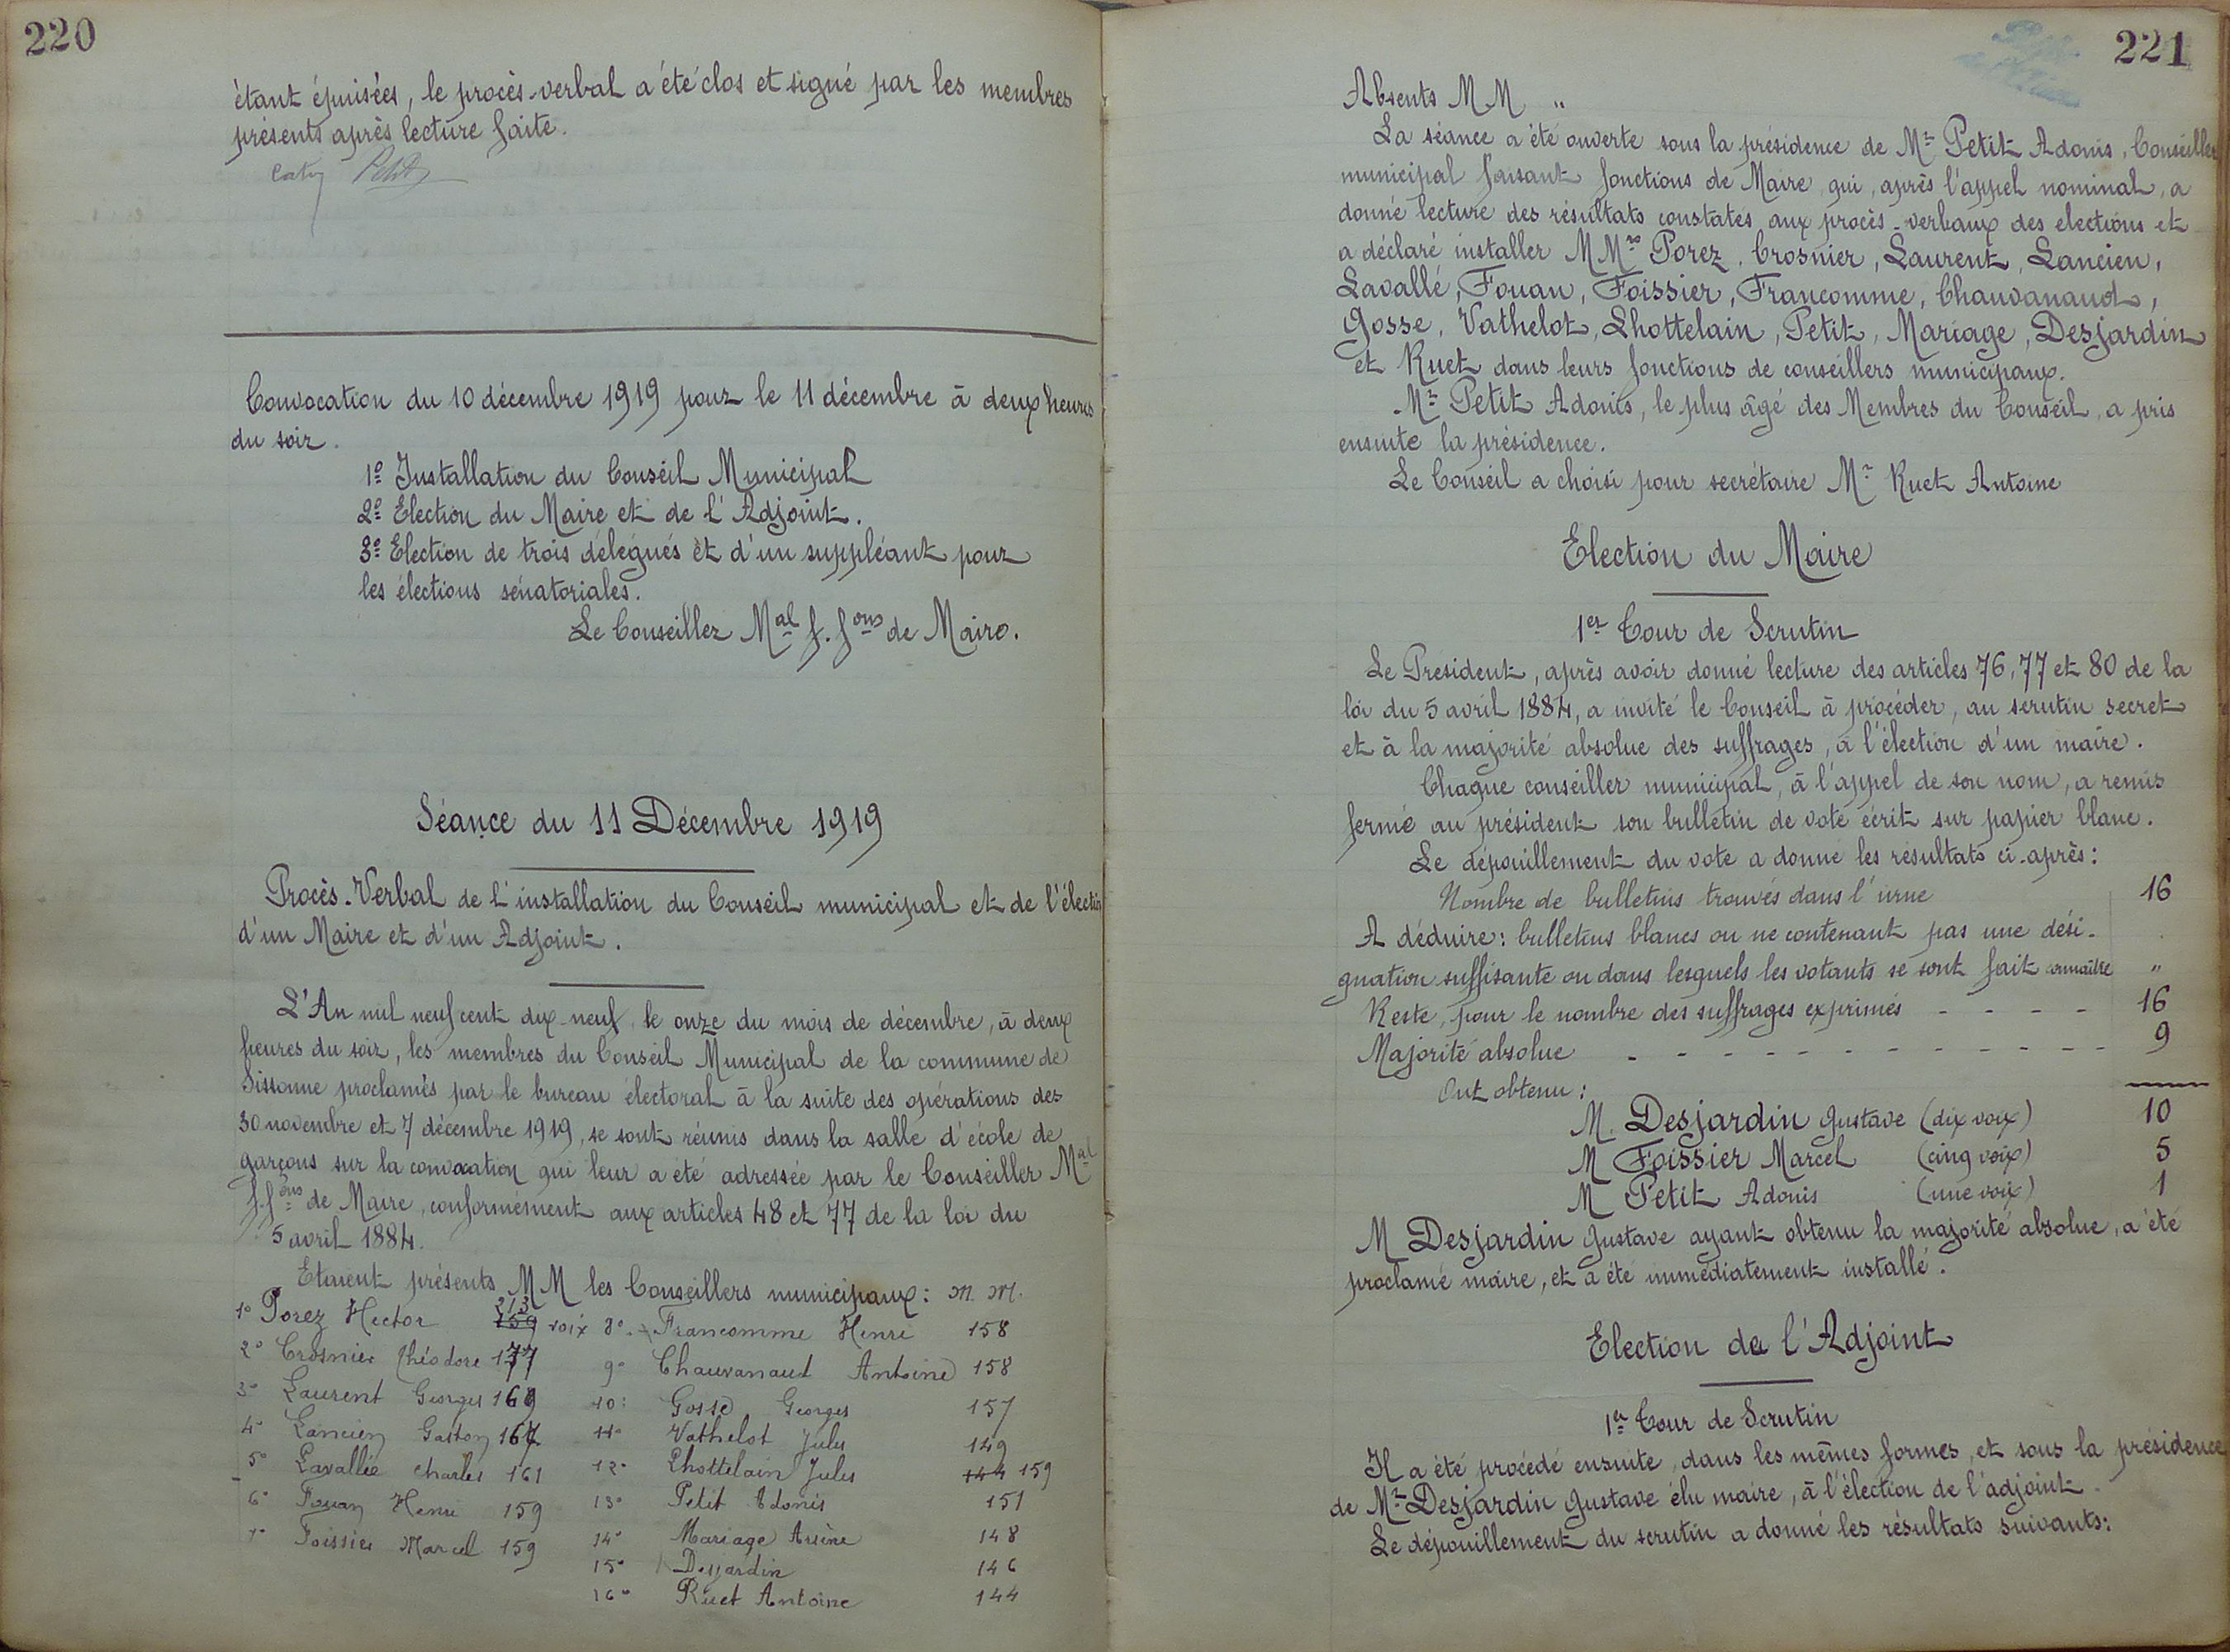 220
étant épuisées, le procès-verbal a été clos et signé par les membres
présents après lecture faite.
Petit
Convocation du 10 décembre 1919 pour le 11 décembre à deux heures
du soir.
1º Installation du Conseil Municipal
2º Election du Maire et de l'Adjoint.
3º Election de trois délégués et d'un suppléant pour
les élections sénatoriales.
Le Conseiller Mal f. fons de Maire.
Séance du 11 Décembre 1919
Procès-Verbal de l'installation du Conseil municipal et de l'élection
d'un Maire et d'un Adjoint.
L'An mil neuf cent dix-neuf, le onze du mois de décembre, à deux
heures du soir, les membres du Conseil Municipal de la commune de
Sissonne proclamés par le bureau électoral à la suite des opérations des
30 novembre et 7 décembre 1919, se sont réunis dans la salle d'école de
garçons sur la convocation qui leur a été adressée par le Conseiller Mal
f. fons de Maire, conformément aux articles 48 et 77 de la loi du
5 avril 1884.
Etaient présents MM les Conseillers municipaux : M. M.
1º Porez Hector 213 159 voix
2º Crosnier Théodore 177
3º Laurent Georges 169
4º Lancien Gaston 167
5º Lavallée Charles 161
6º Fouan Henri 159
7º Foissier Marcel 159
8º Francomme Henri 158
9º Chauvanaud Antoine 158
10: Gosse Georges 157
11º Vathelot Jules 149
12º Lhottelain Jules 144 159
13º Petit Adonis 151
14º Mariage Arsène 148
15º Desjardin 146
16º Ruet Antoine 144
221
Absents MM "
La séance a été ouverte sous la présidence de Mr Petit Adonis, Conseiller
municipal faisant fonctions de Maire qui, après l'appel nominal, a
donné lecture des résultats constatés aux procès-verbaux des elections et
a déclaré installer MMrs Porez, Crosnier, Laurent, Lancien,
Lavallé, Fouan, Foissier, Francomme, Chauvanaud,
Gosse, Vathelot, Lhottelain, Petit, Mariage, Desjardin
et Ruet dans leurs fonctions de conseillers municipaux.
Mr Petit Adonis, le plus âgé des Membres du Conseil, a pris
ensuite la présidence.
Le Conseil a choisi pour secrétaire Mr Ruet Antoine
Election du Maire
1er Tour de Scrutin
Le Président, après avoir donné lecture des articles 76, 77 et 80 de la
loi du 5 avril 1884, a invité le Conseil à procéder, au scrutin secret
et à la majorité absolue des suffrages, à l'élection d'un maire.
Chaque conseiller municipal, à l'appel de son nom, a remis
fermé au président son bulletin de vote écrit sur papier blanc.
Le dépouillement du vote a donné les résultats ci-après :
Nombre de bulletins trouvés dans l'urne 16
A déduire : bulletins blancs ou ne contenant pas une dési-
gnation suffisante ou dans lesquels les votants se sont fait connaître "
Reste, pour le nombre des suffrages exprimés - - - - 16
Majorité absolue - - - - - - - - - - - - 9
Ont obtenu :
M. Desjardin Gustave (dix voix) 10
M Foissier Marcel (cinq voix) 5
M Petit Adonis (une voix) 1
M Desjardin Gustave ayant obtenu la majorité absolue, a été
proclamé maire, et a été immédiatement installé.
Election de l'Adjoint
1er Tour de Scrutin
Il a été procédé ensuite, dans les mêmes formes, et sous la présidence
de Mr Desjardin Gustave élu maire, à l'élection de l'adjoint.
Le dépouillement du scrutin a donné les résultats suivants :